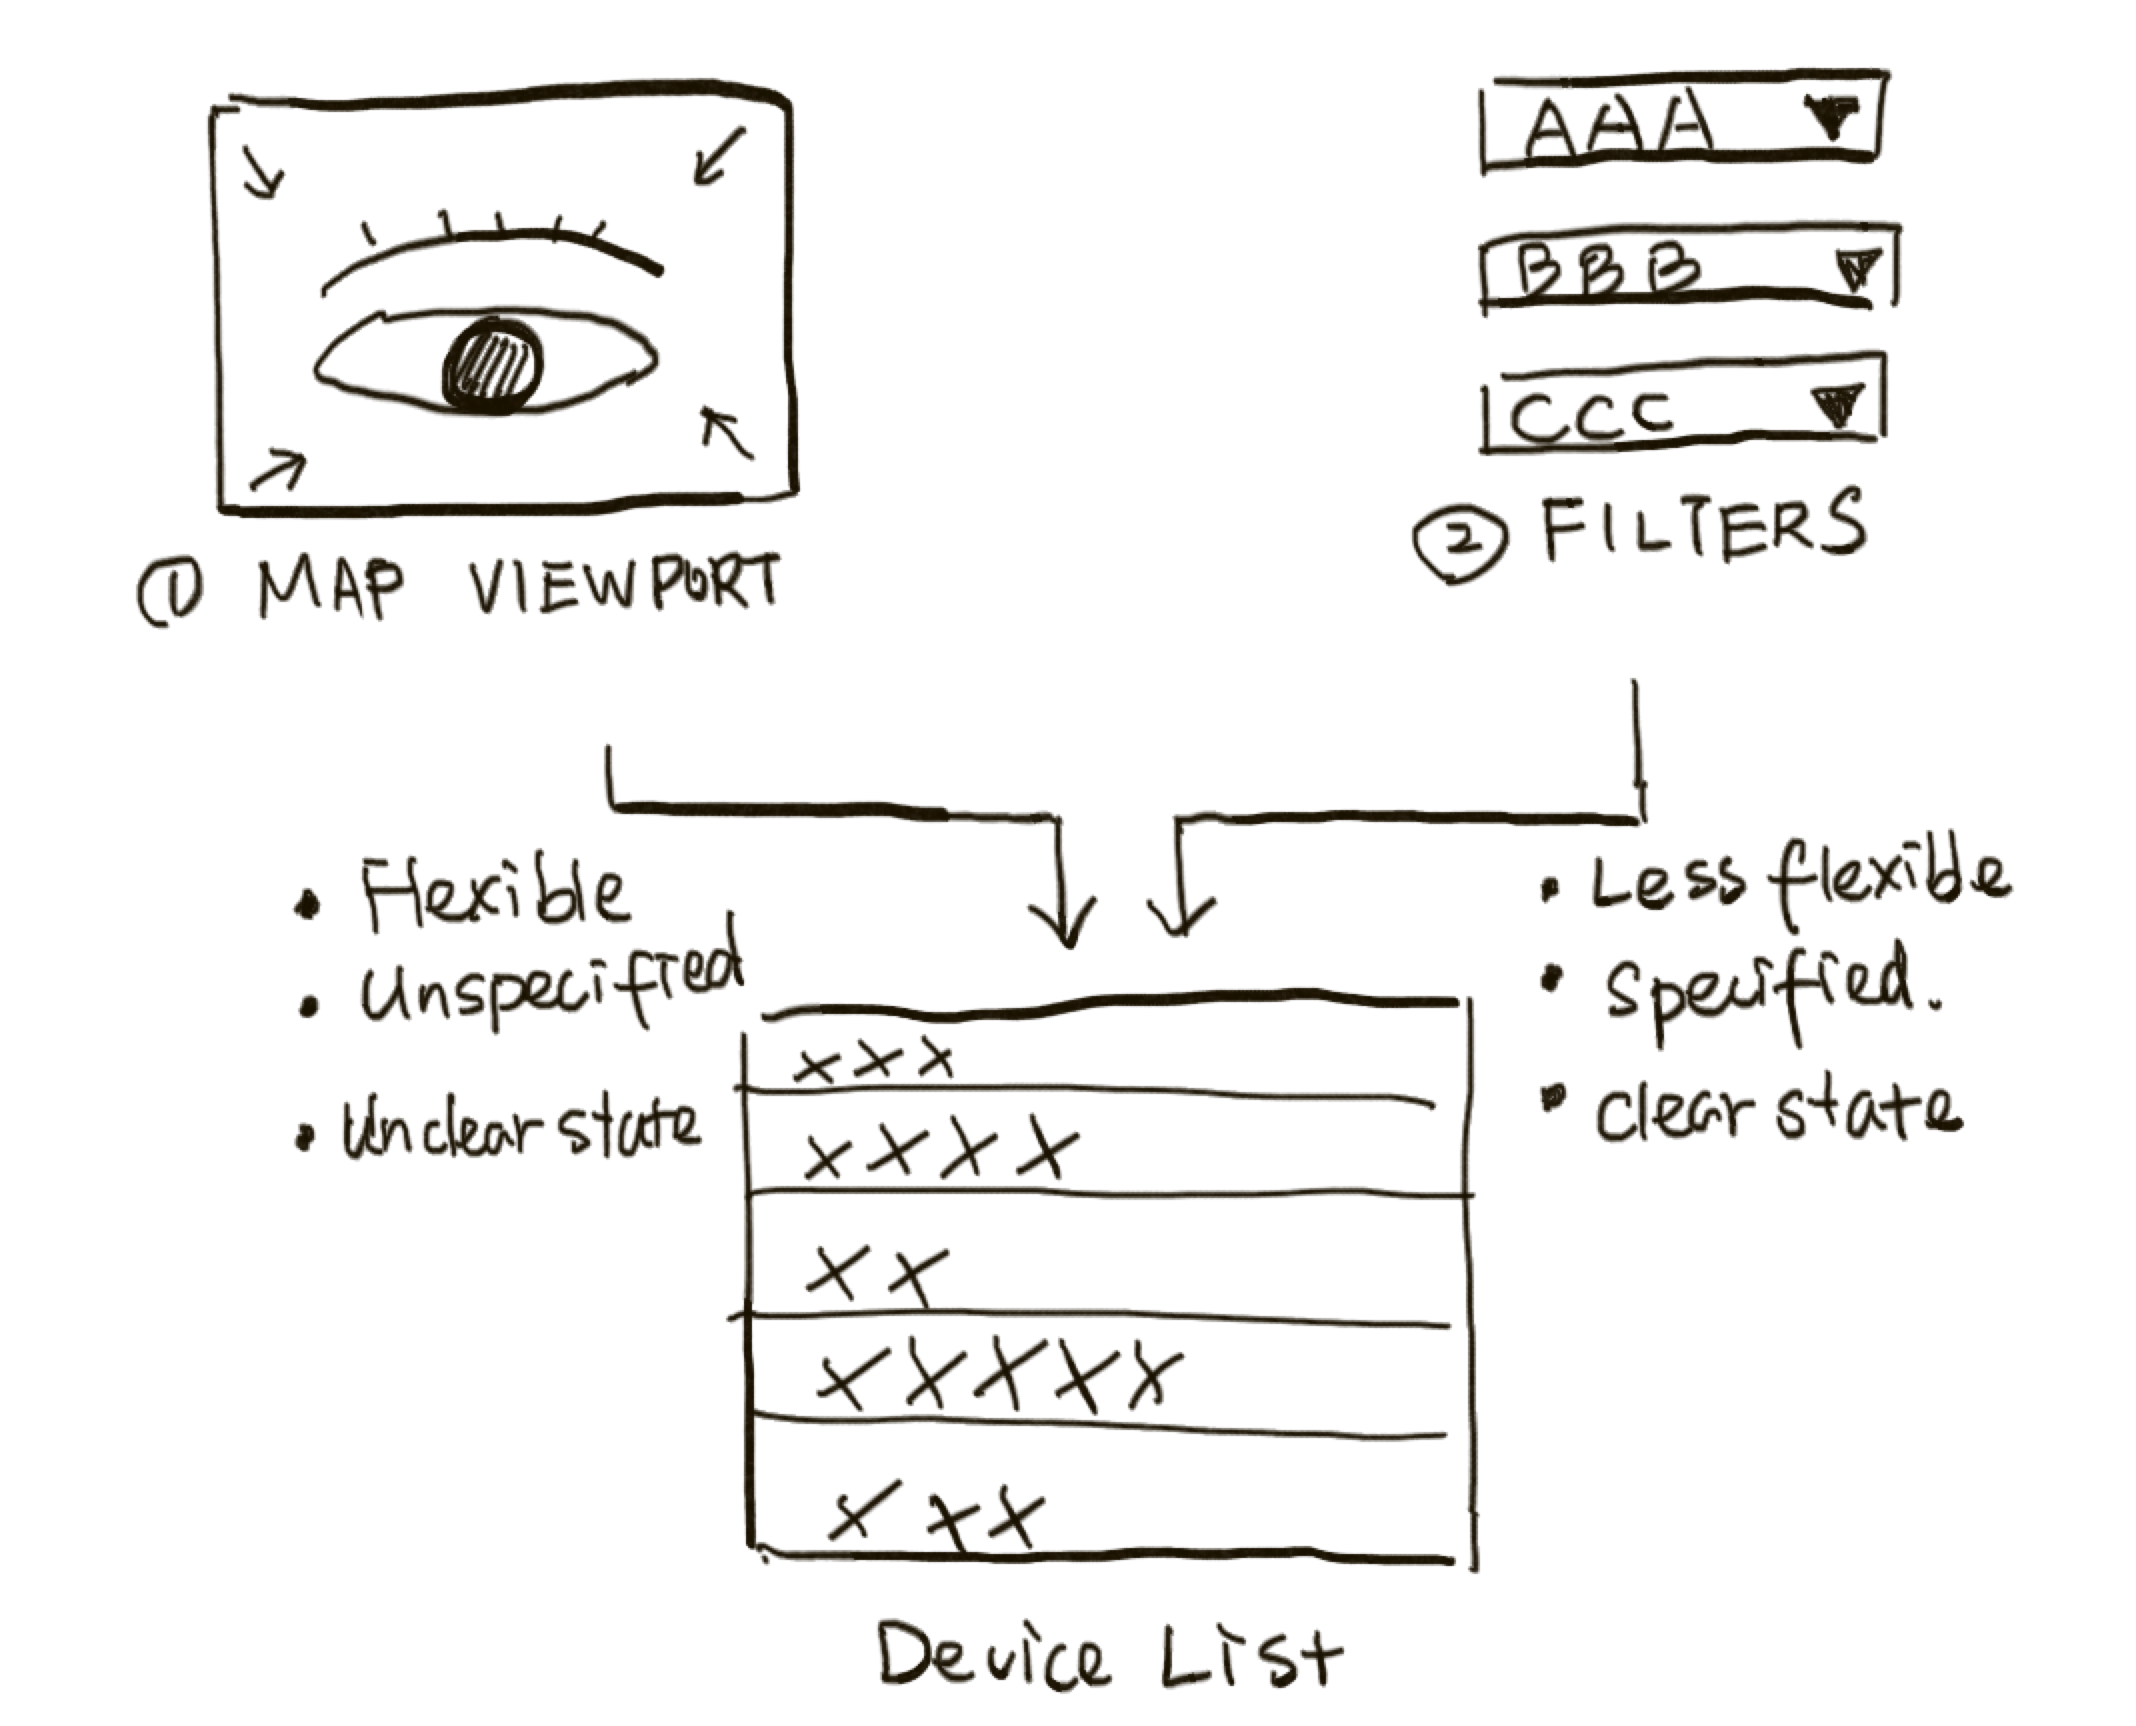 AAA
BBB
CCC
① MAP VIEWPORT
② FILTERS
• Flexible
• Unspecified
• Unclear state
• Less flexible
• Specified.
• Clear state
xxx
xxxx
xx
xxxxx
xxx
Device List